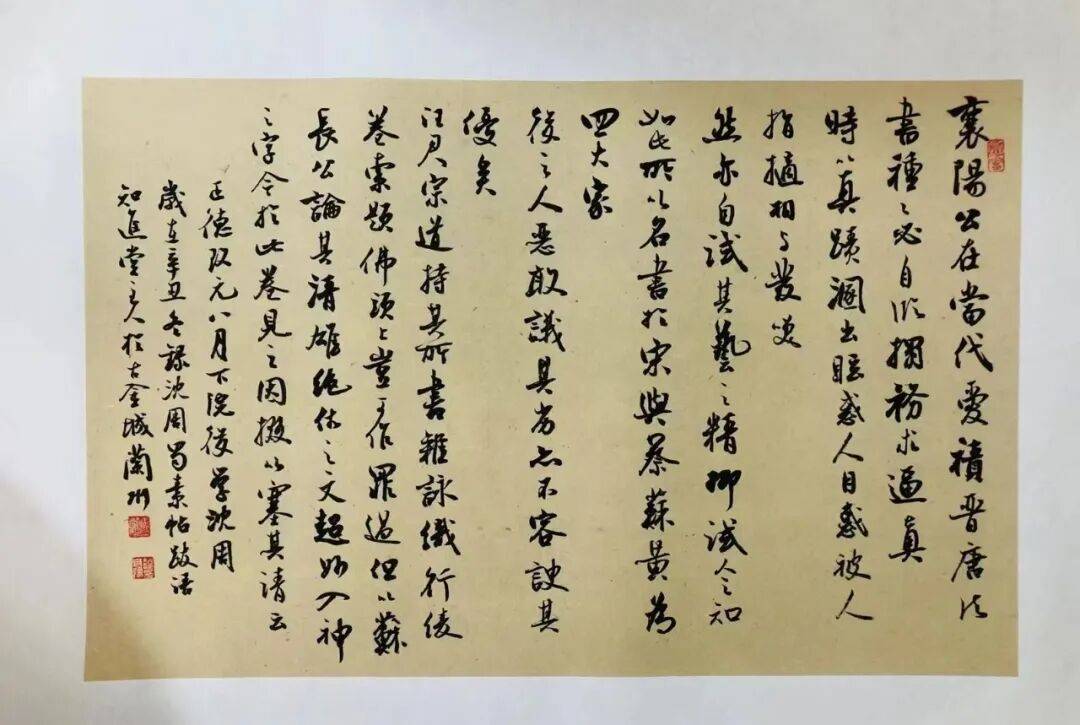 襄陽公在當代愛積晉唐法
書種々必自臨搨務求逼真
時以真蹟溷出眩惑人目或被人
指摘相與發笑
然亦自試其藝之精抑試人之知
如此所以名書於宋與蔡蘇黃為
四大家
後之人惡敢議其劣亦不容諛其
優矣
汪君宗道持其所書雜詠織行綾
卷索題佛頭上豈可作罪過但以蘇
長公論其清雄絕俗之文超妙入神
之字今於此卷見之因掇以塞其請云
正德改元八月下浣後學沈周
歲在辛丑冬錄沈周蜀素帖跋語
知進堂主人於古金城蘭州